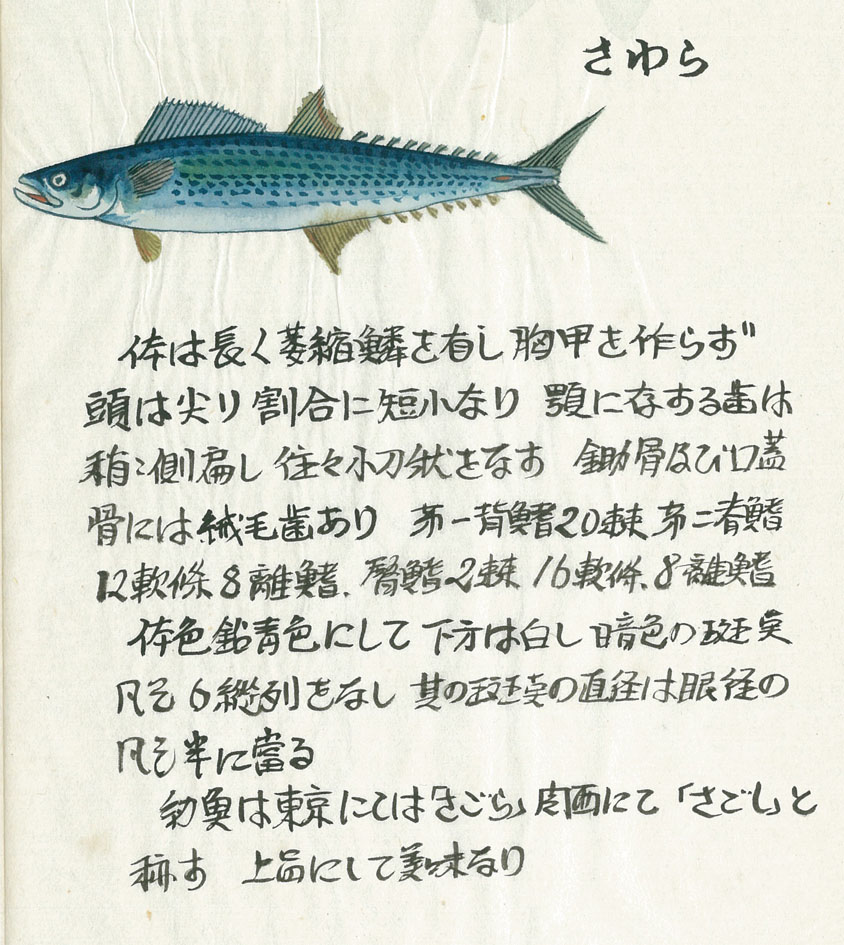 さわら
体は長く萎縮鱗を有し胸甲を作らず
頭は尖り割合に短小なり 顎に存する歯は
稍々側扁し往々小刀状をなす 鋤骨及び口蓋
骨には絨毛歯あり 第一背鰭20棘 第二脊鰭
12軟條 8離鰭. 臀鰭2棘 16軟條. 8離鰭
体色鉛青色にして下方は白し 暗色の斑点
凡そ6縦列をなし 其の斑点の直径は眼径の
凡そ半に當る
幼魚は東京にては「さごら」関西にて「さごし」と
称す 上品にして美味なり